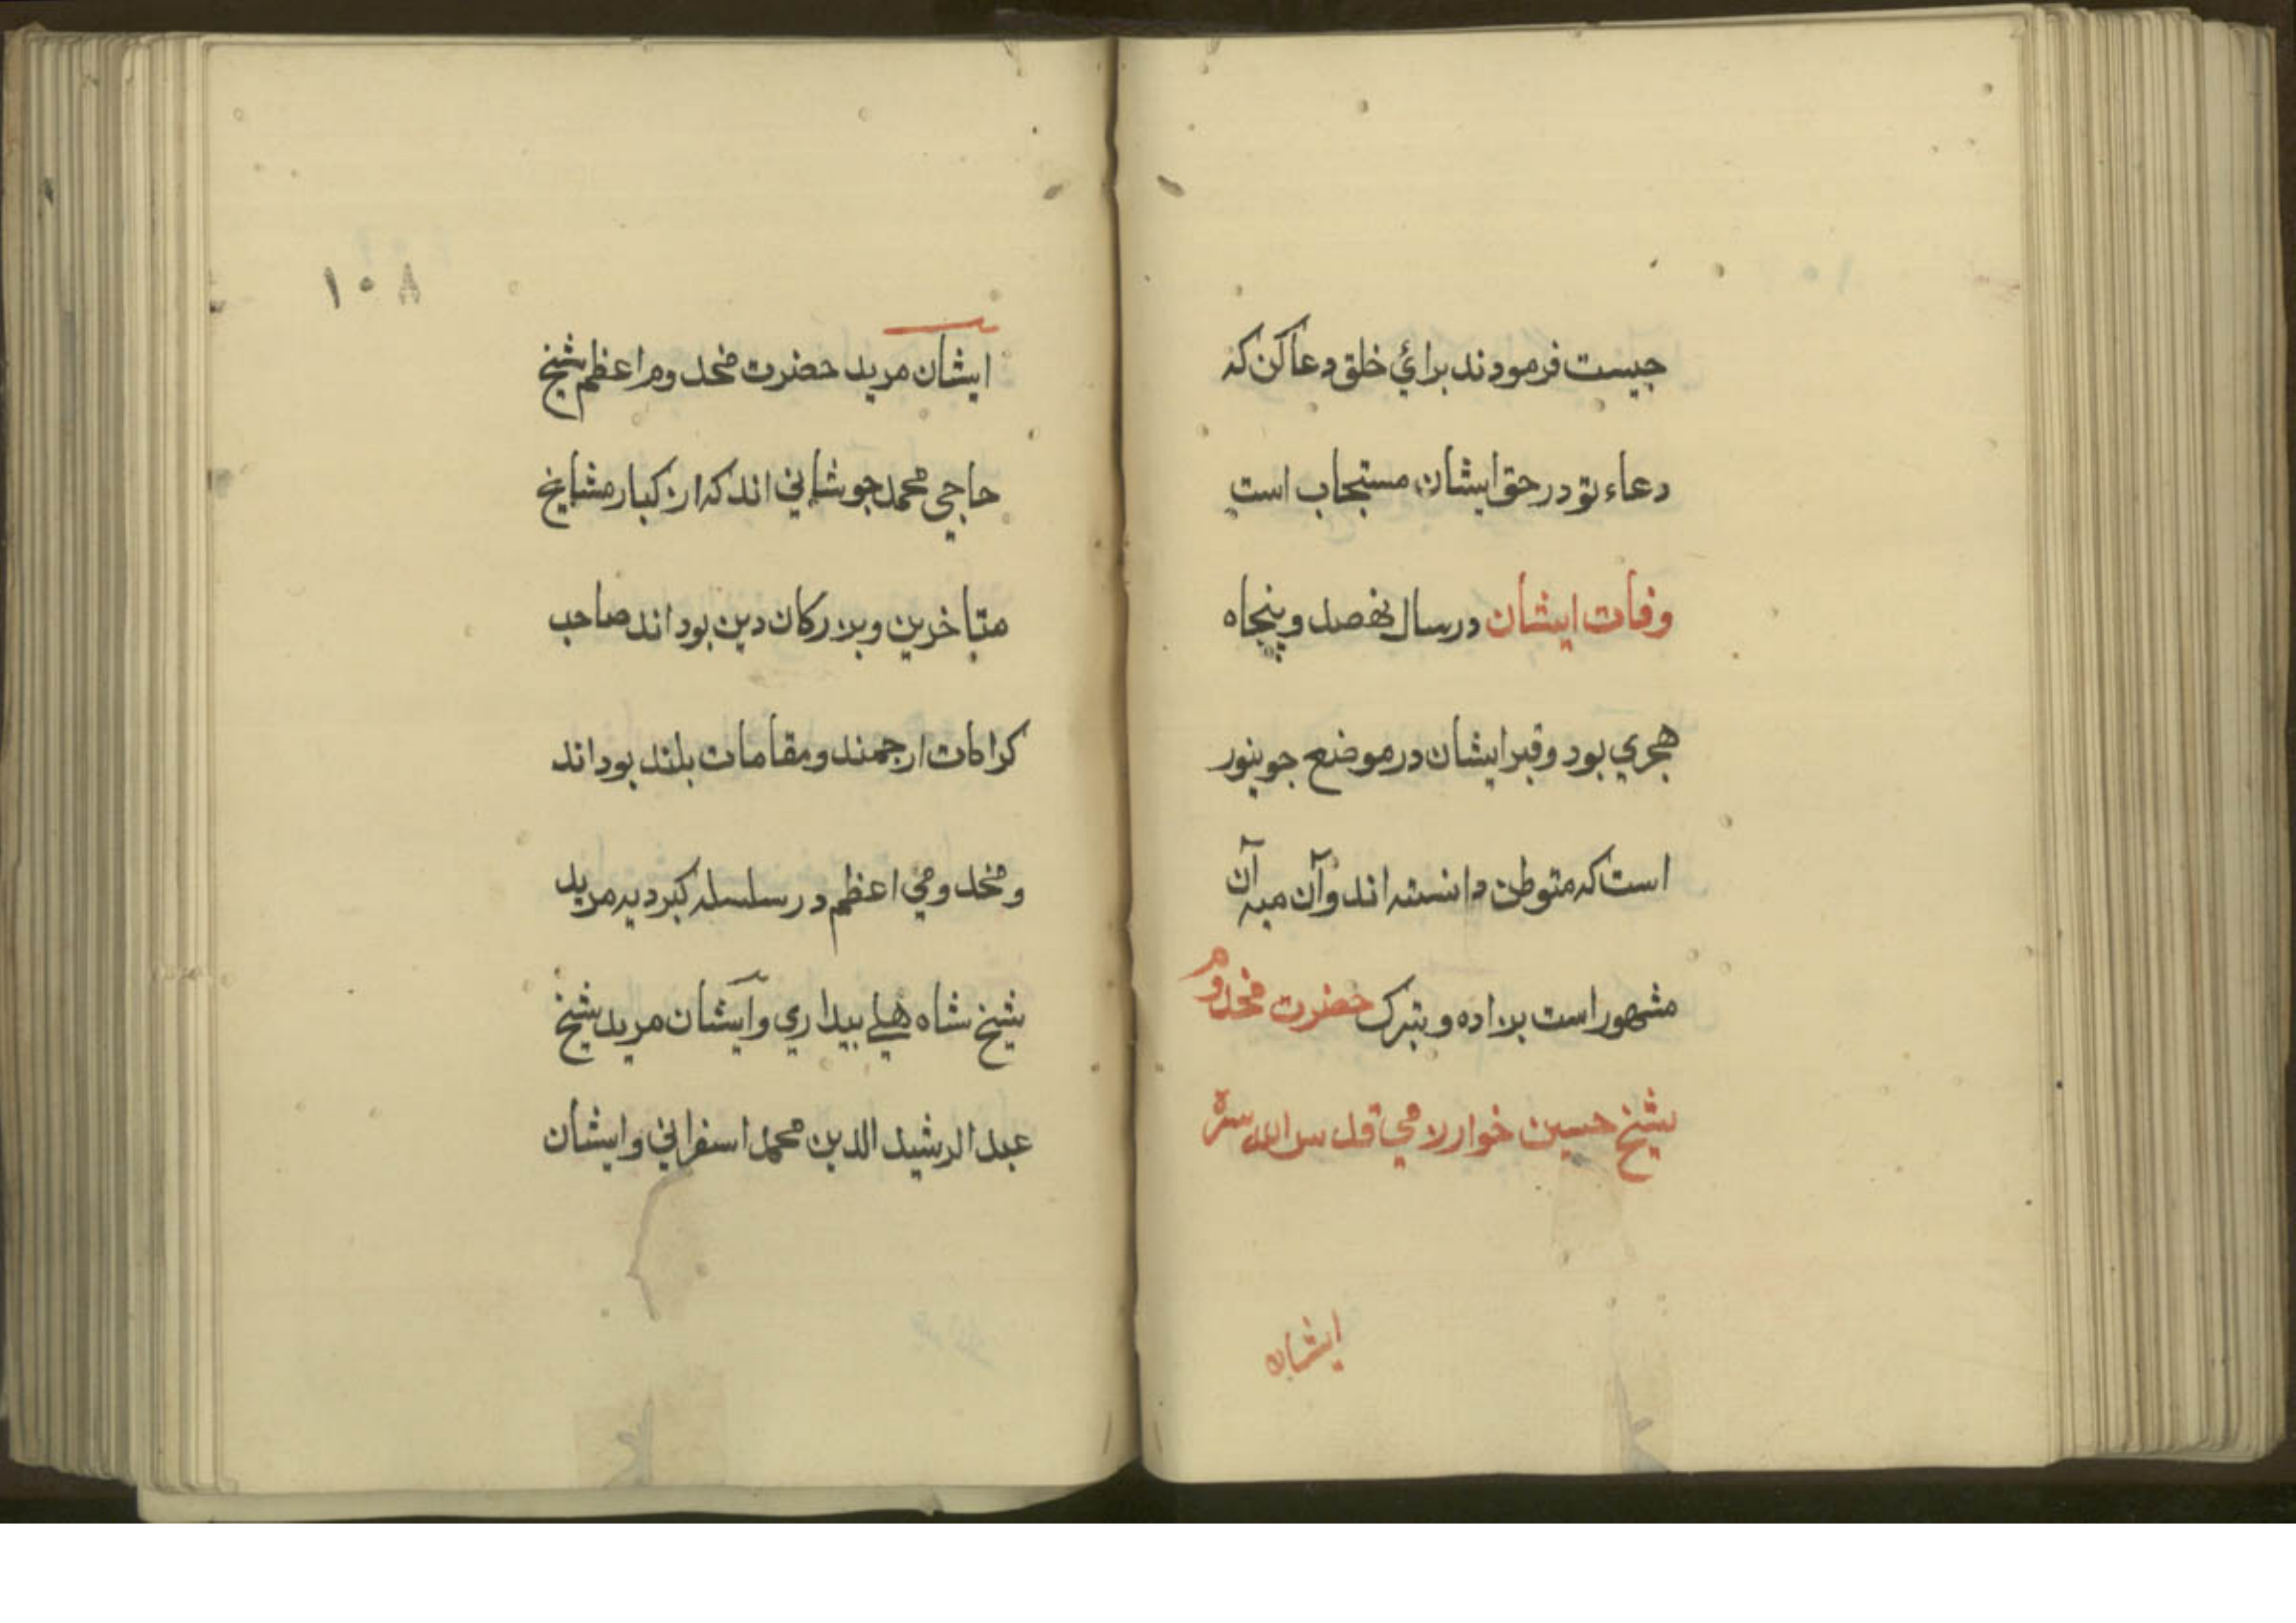 جيست فرمودند برائي خلق دعا كن كه
دعاء تو در حق ايشان مستجاب است
وفات ايشان در سال نهصد و پنجاه
هجري بود و قبر ايشان در موضع جوپنور
است كه متوطن دانسته اند و آن
مشهور است بزاده و بتبرك حضرت مخدوم
شيخ حسين خوارزمي قدس الله سره
ايشان
١٠٨
ايشان مريد حضرت مخدوم اعظم شيخ
حاجي محمد جوشاني اند كه از كبار مشايخ
متاخرين و بزركان دين بود اند صاحب
كرامات ارجمند و مقامات بلند بود اند
و مخدومي اعظم در سلسله كبرديه مريد
شيخ شاه بيداري و ايشان مريد شيخ
عبد الرشيد الدين محمد اسفرائي و ايشان